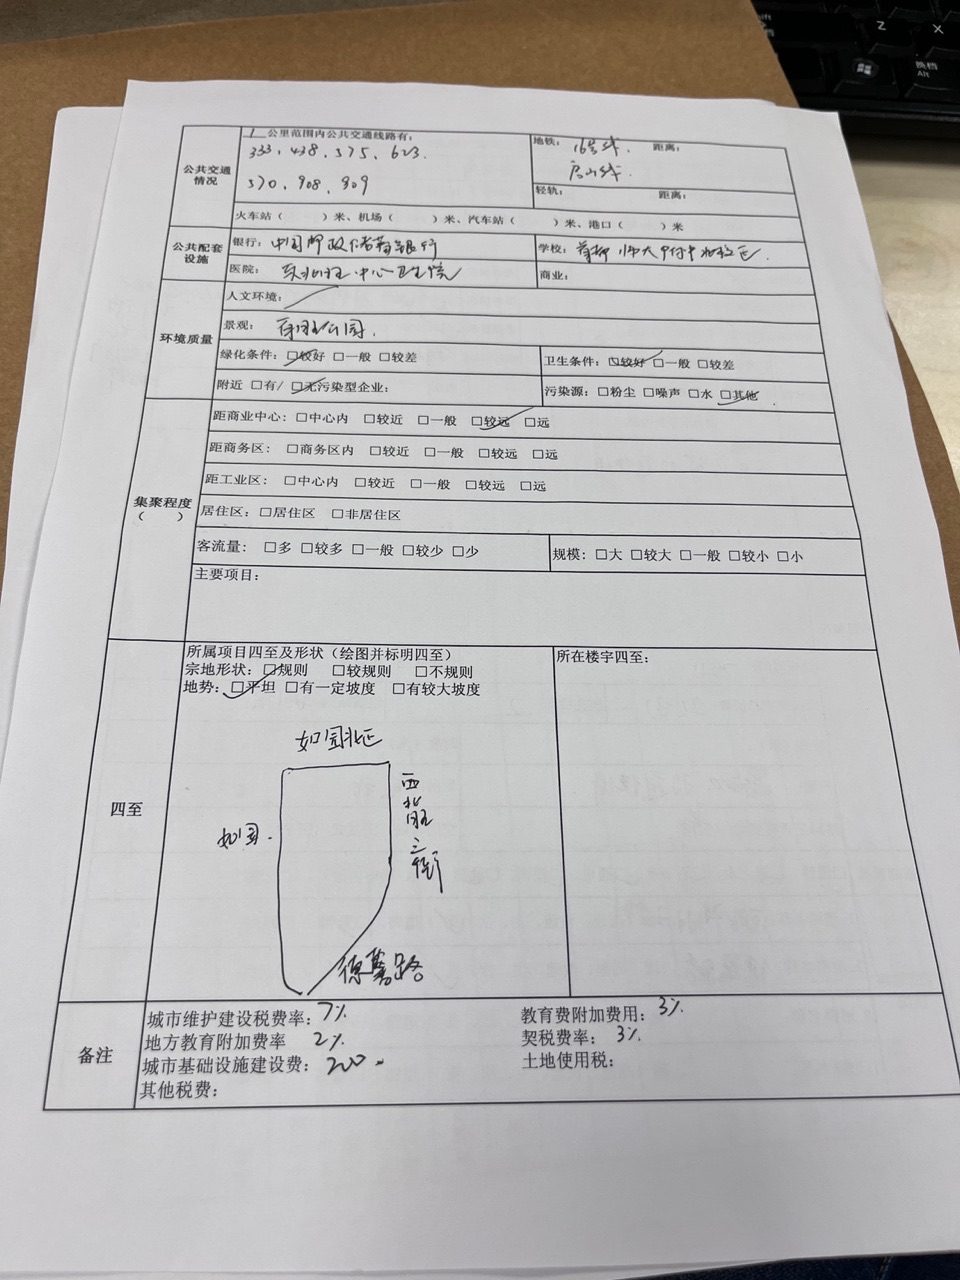 公共交通情况
1 公里范围内公共交通线路有：
333、438、575、623.
570、908、909
地铁： 16号线. 距离：
房山线.
轻轨： 距离：
火车站（ ）米、机场（ ）米、汽车站（ ）米、港口（ ）米
公共配套设施
银行：中国邮政储蓄银行
学校：首都师大附中北校区.
医院： 东北旺中心卫生院
商业：
环境质量
人文环境：
景观： 百旺公园.
绿化条件：☑较好 □一般 □较差
卫生条件：☑较好 □一般 □较差
附近 □有/ ☑无污染型企业：
污染源：□粉尘 □噪声 □水 ☑其他
集聚程度（ ）
距商业中心：□中心内 □较近 □一般 ☑较远 □远
距商务区： □商务区内 □较近 □一般 □较远 □远
距工业区：□中心内 □较近 □一般 □较远 □远
居住区：□居住区 □非居住区
客流量： □多 □较多 □一般 □较少 □少
规模：□大 □较大 □一般 □较小 □小
主要项目：
四至
所属项目四至及形状（绘图并标明四至）
宗地形状：☑规则 □较规则 □不规则
地势：☑平坦 □有一定坡度 □有较大坡度
所在楼宇四至：
如园北区
如园.
西北旺三街
德惠路
备注
城市维护建设税费率：7%
教育费附加费用：3%
地方教育附加费率 2%
契税费率：3%
城市基础设施建设费：200-
土地使用税：
其他税费：